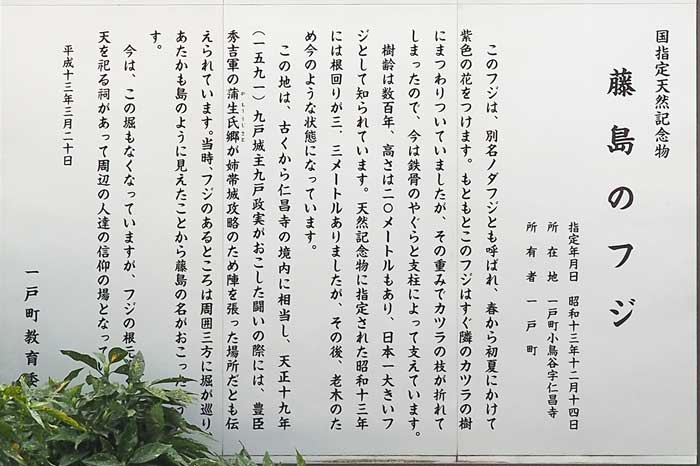 国指定天然記念物
藤島のフジ
指定年月日 昭和十三年十二月十四日
所在地 一戸町小鳥谷字仁昌寺
所有者 一戸町
このフジは、別名ノダフジとも呼ばれ、春から初夏にかけて
紫色の花をつけます。もともとこのフジはすぐ隣のカツラの樹
にまつわりついていましたが、その重みでカツラの枝が折れて
しまったので、今は鉄骨のやぐらと支柱によって支えています。
樹齢は数百年、高さは二〇メートルもあり、日本一大きいフ
ジとして知られています。天然記念物に指定された昭和十三年
には根回りが三．三メートルありましたが、その後、老木のた
め今のような状態になっています。
この地は、古くから仁昌寺の境内に相当し、天正十九年
(一五九一)九戸城主九戸政実がおこした闘いの際には、豊臣
秀吉軍の蒲生氏郷が姉帯城攻略のため陣を張った場所だとも伝
がもううじさと
えられています。当時、フジのあるところは周囲三方に堀が巡り
あたかも島のように見えたことから藤島の名がおこった
す。
今は、この堀もなくなっていますが、フジの根元
天を祀る祠があって周辺の人達の信仰の場となって
平成十三年三月二十日
一戸町教育委